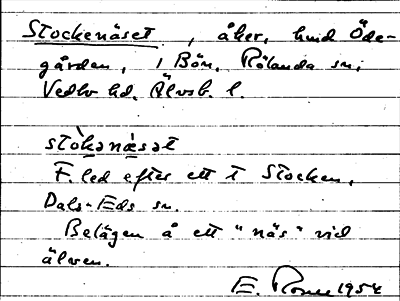 Stockenäset, åker, hmd Öde-
gården, i Bön, Rölanda sn,
Vedbo hd. Älvsb. l.
stòkənæ̀sət
F. led efter ett t Stocken,
Dals-Eds sn.
Belägen å ett "näs" vid
älven.
E. 1954